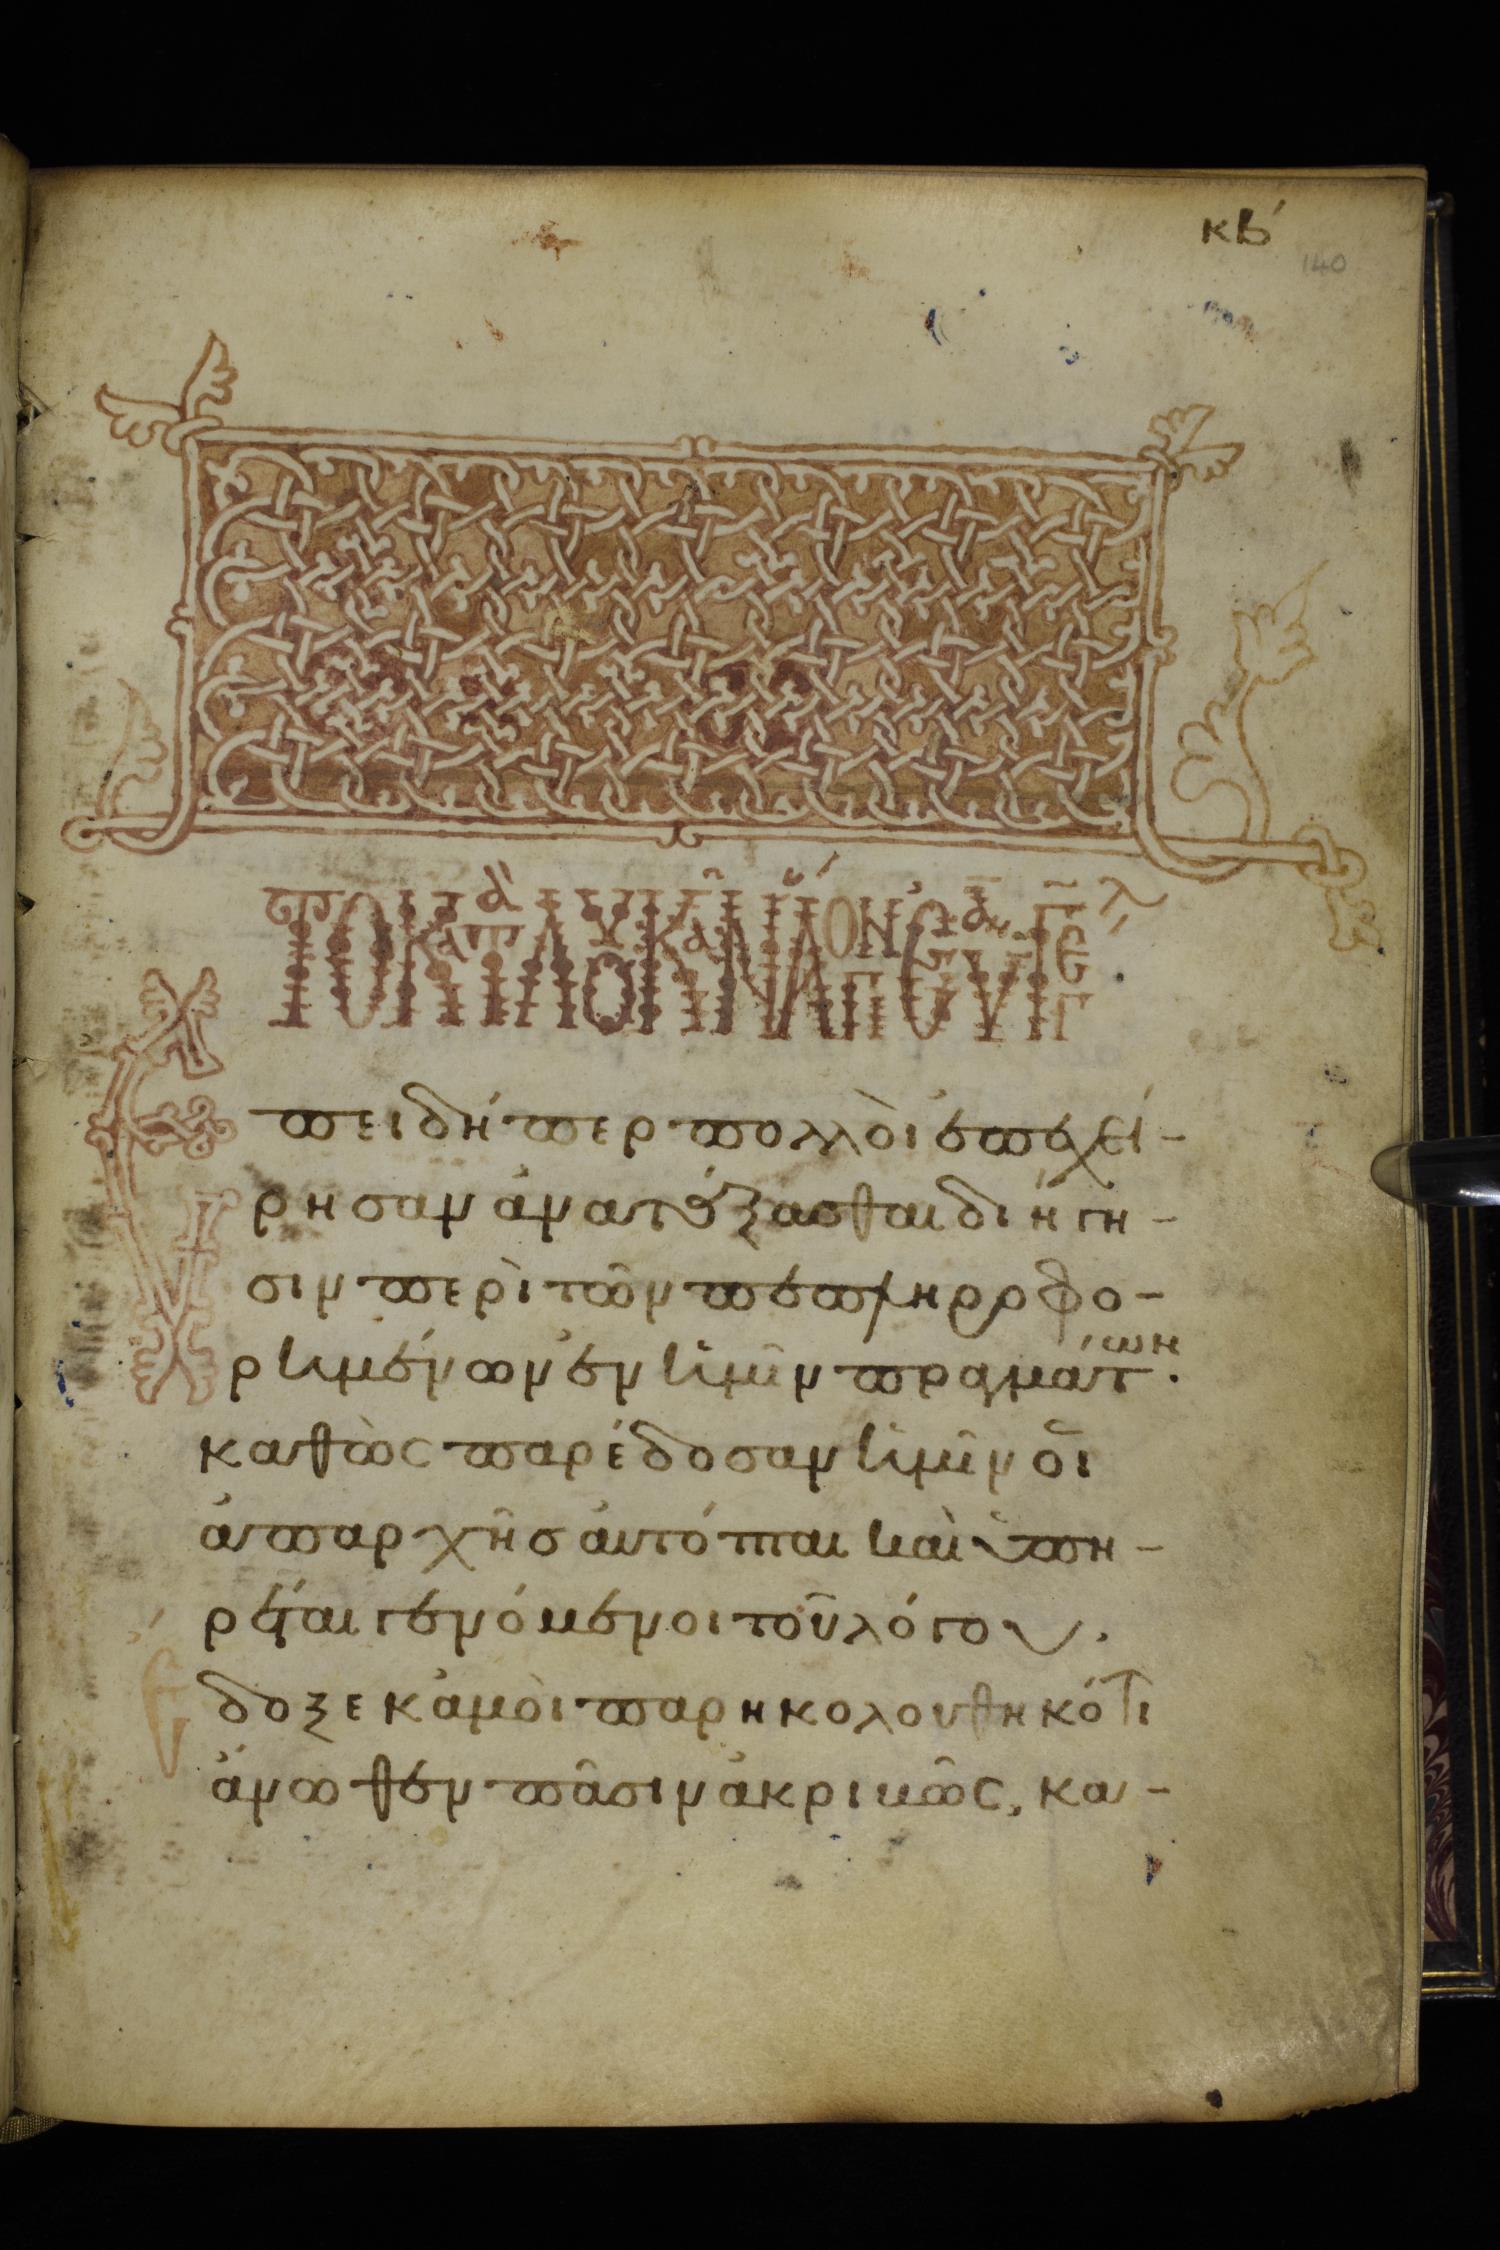 κβ´
140
Ἐ
πειδήπερ πολλὸι ἐπεχεί-
ρησαν ἀνατάξασθαι διήγη-
σιν περὶ τῶν πεπληροφο-
ρημένων ἐν ἡμῖν πραγμάτων.
καθὼς παρέδοσαν ἡμῖν ὁι
ἀπαρχῆσ ἀυτόπται καὶ ὑπη-
ρέται γενόμενοι τοῦ λόγου.
Ἔδοξε κἀμὸι παρηκολουθηκότι
ἄνωθεν πᾶσιν ἀκριβῶς, κα-